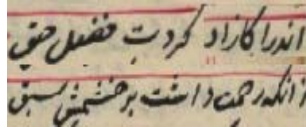 اندرا کازاد کردت فضل حق
زانکه رحمت داشت بر خشمش سبق